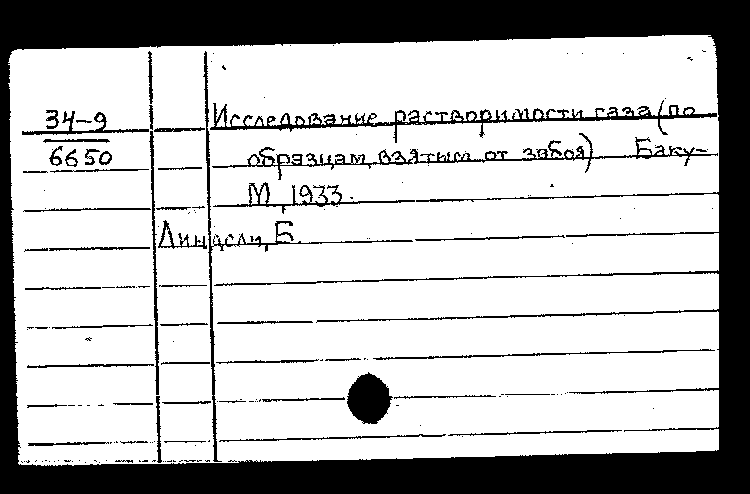 34-9
6650
Исследование растворимости газа (по
образцам, взятым от забоя) Баку-
М, 1933.
Линдсли, Б.